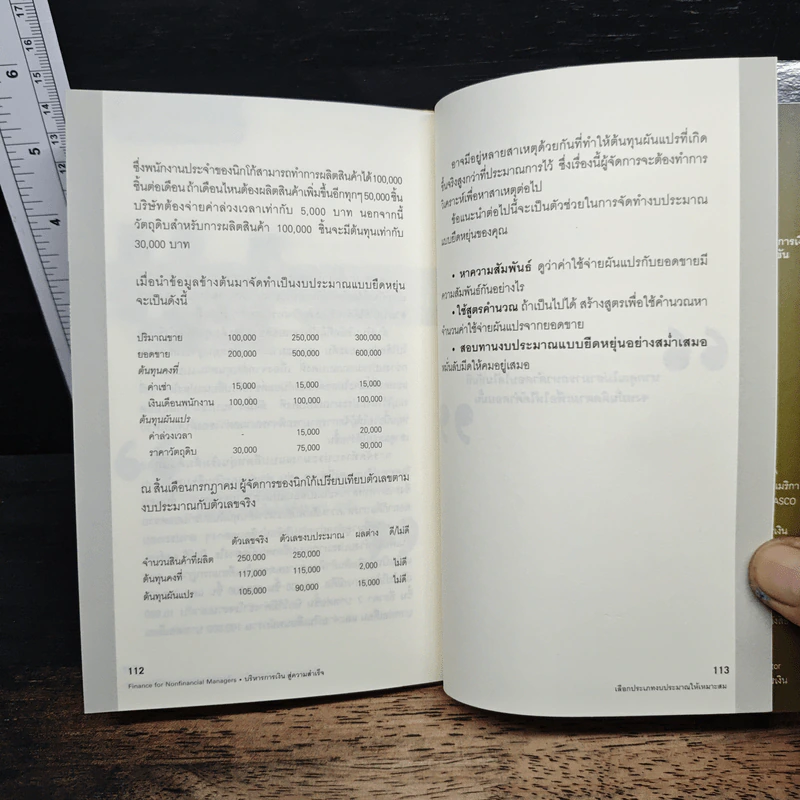 ซึ่งพนักงานประจำของนิกโก้สามารถทำการผลิตสินค้าได้ 100,000
ชิ้นต่อเดือน ถ้าเดือนไหนต้องผลิตสินค้าเพิ่มขึ้นอีกทุกๆ 50,000 ชิ้น
บริษัทต้องจ่ายค่าล่วงเวลาเท่ากับ 5,000 บาท นอกจากนี้
วัตถุดิบสำหรับการผลิตสินค้า 100,000 ชิ้นจะมีต้นทุนเท่ากับ
30,000 บาท
เมื่อนำข้อมูลข้างต้นมาจัดทำเป็นงบประมาณแบบยืดหยุ่น
จะเป็นดังนี้
ปริมาณขาย 100,000 250,000 300,000
ยอดขาย 200,000 500,000 600,000
ต้นทุนคงที่
ค่าเช่า 15,000 15,000 15,000
เงินเดือนพนักงาน 100,000 100,000 100,000
ต้นทุนผันแปร
ค่าล่วงเวลา - 15,000 20,000
ราคาวัตถุดิบ 30,000 75,000 90,000
ณ สิ้นเดือนกรกฎาคม ผู้จัดการของนิกโก้เปรียบเทียบตัวเลขตาม
งบประมาณกับตัวเลขจริง
ตัวเลขจริง ตัวเลขงบประมาณ ผลต่าง ดี/ไม่ดี
จำนวนสินค้าที่ผลิต 250,000 250,000
ต้นทุนคงที่ 117,000 115,000 2,000 ไม่ดี
ต้นทุนผันแปร 105,000 90,000 15,000 ไม่ดี
112
Finance for Nonfinancial Managers • บริหารการเงิน สู่ความสำเร็จ
อาจมีอยู่หลายสาเหตุด้วยกันที่ทำให้ต้นทุนผันแปรที่เกิด
ขึ้นจริงสูงกว่าที่ประมาณการไว้ ซึ่งเรื่องนี้ผู้จัดการจะต้องทำการ
วิเคราะห์เพื่อหาสาเหตุต่อไป
ข้อแนะนำต่อไปนี้จะเป็นตัวช่วยในการจัดทำงบประมาณ
แบบยืดหยุ่นของคุณ
• หาความสัมพันธ์ ดูว่าค่าใช้จ่ายผันแปรกับยอดขายมี
ความสัมพันธ์กันอย่างไร
• ใช้สูตรคำนวณ ถ้าเป็นไปได้ สร้างสูตรเพื่อใช้คำนวณหา
จำนวนค่าใช้จ่ายผันแปรจากยอดขาย
• สอบทานงบประมาณแบบยืดหยุ่นอย่างสม่ำเสมอ
หมั่นลับมีดให้คมอยู่เสมอ
113
เลือกประเภทงบประมาณให้เหมาะสม